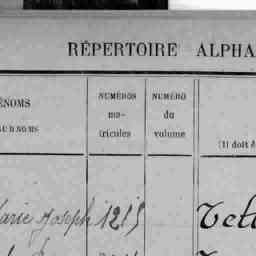 RÉPERTOIRE ALPHA
ÉNOMS
SURNOMS
NUMÉROS
ma-
tricules
NUMÉRO
du
volume
(1) doit ê
arie Joseph 1215